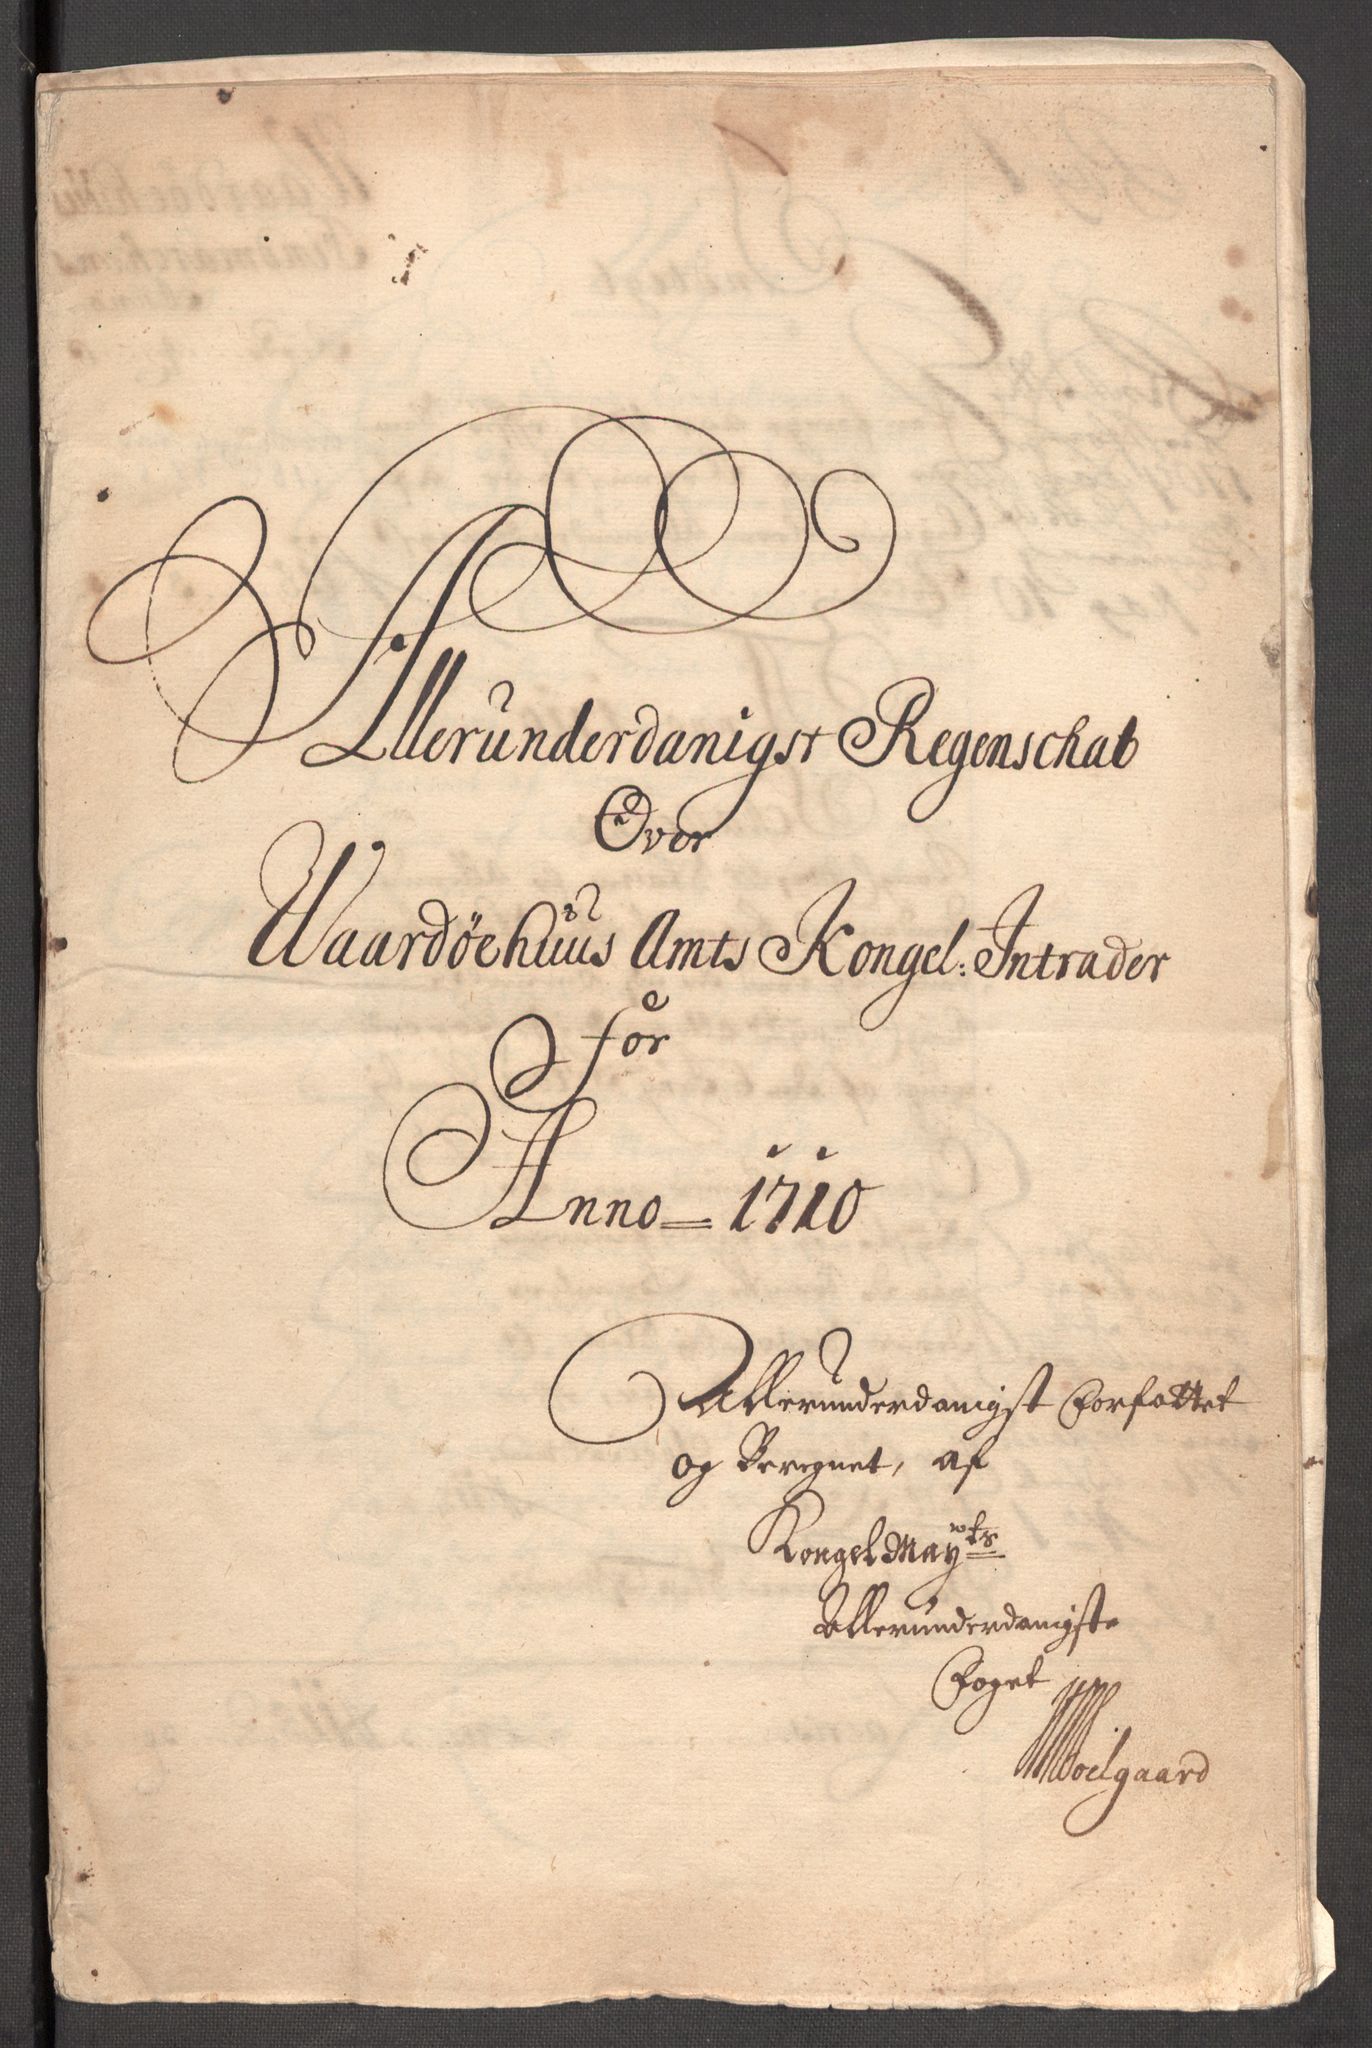 Allerunderdanigst Regenschab
Over
Waardöehuus Amts Kongel: Intrader
for
Anno 1710
Allerunderdanigst forfattet
og Beregnet, af
Kongel May:ts
Allerunderdanigste
foget